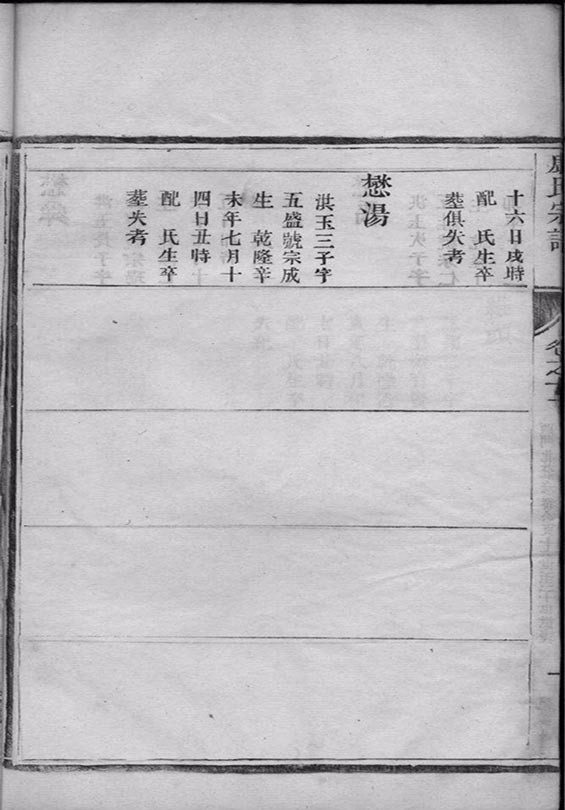 十六日戌時
配　氏生卒
塟俱失考
懋湯
洪玉三子字
五盛號宗成
生　乾隆辛
未年七月十
四日丑時
配　氏生卒
塟失考